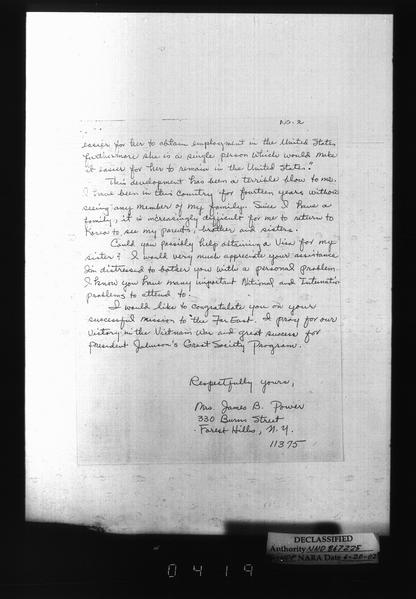 No. 2
easier for her to obtain employment in the United States
furthermore she is a single person which would make
it easier for her to remain in the United States."
This development has been a terrible blow to me.
I have been in this country for fourteen years without
seeing any member of my family. Since I have a
family, it is increasingly difficult for me to return to
Korea to see my parents, brother and sisters.
Could you possibly help obtaining a Visa for my
sister? I would very much appreciate your assistance
I'm distressed to bother you with a personal problem.
I know you have many important National and Internatio
problems to attend to.
I would like to congratulate you on your
successful mission to the Far East. I pray for our
victory in the Vietnam War and great success for
president Johnson's Great Society Program.
Respectfully yours,
Mrs. James B. Power
330 Burns Street
Forest Hills, N.Y.
11375
DECLASSIFIED
Authority NND 867225
NARA Date 6-20-02
0419